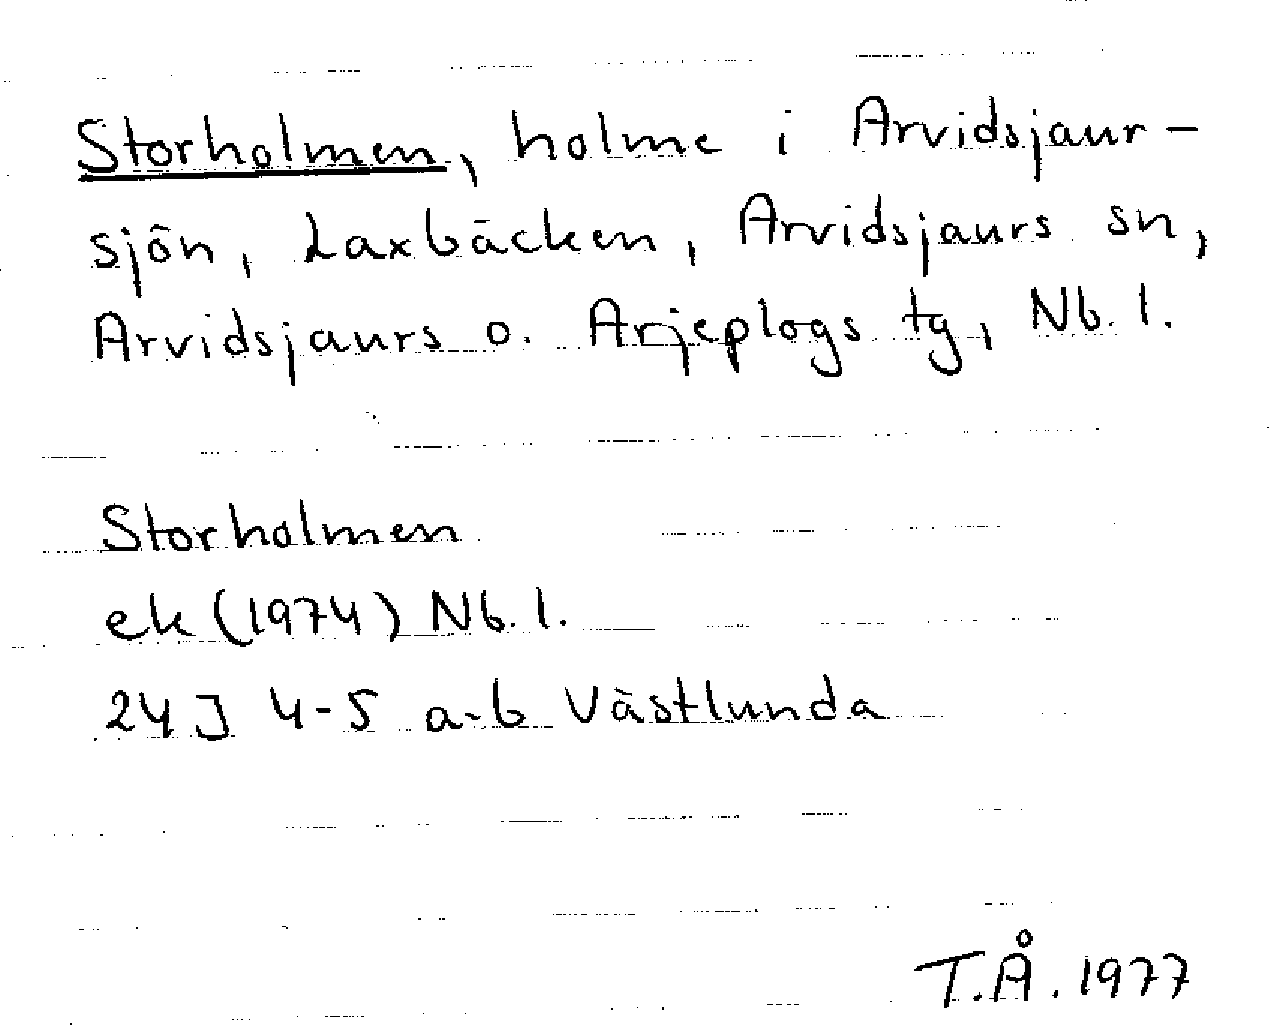 Storholmen, holme i Arvidsjaur-
sjön, Laxbäcken, Arvidsjaurs sn,
Arvidsjaurs o. Arjeplogs tg, Nb. l.
Storholmen
ek (1974) Nb. l.
24 J 4-5 a-b Västlunda
T.Å. 1977